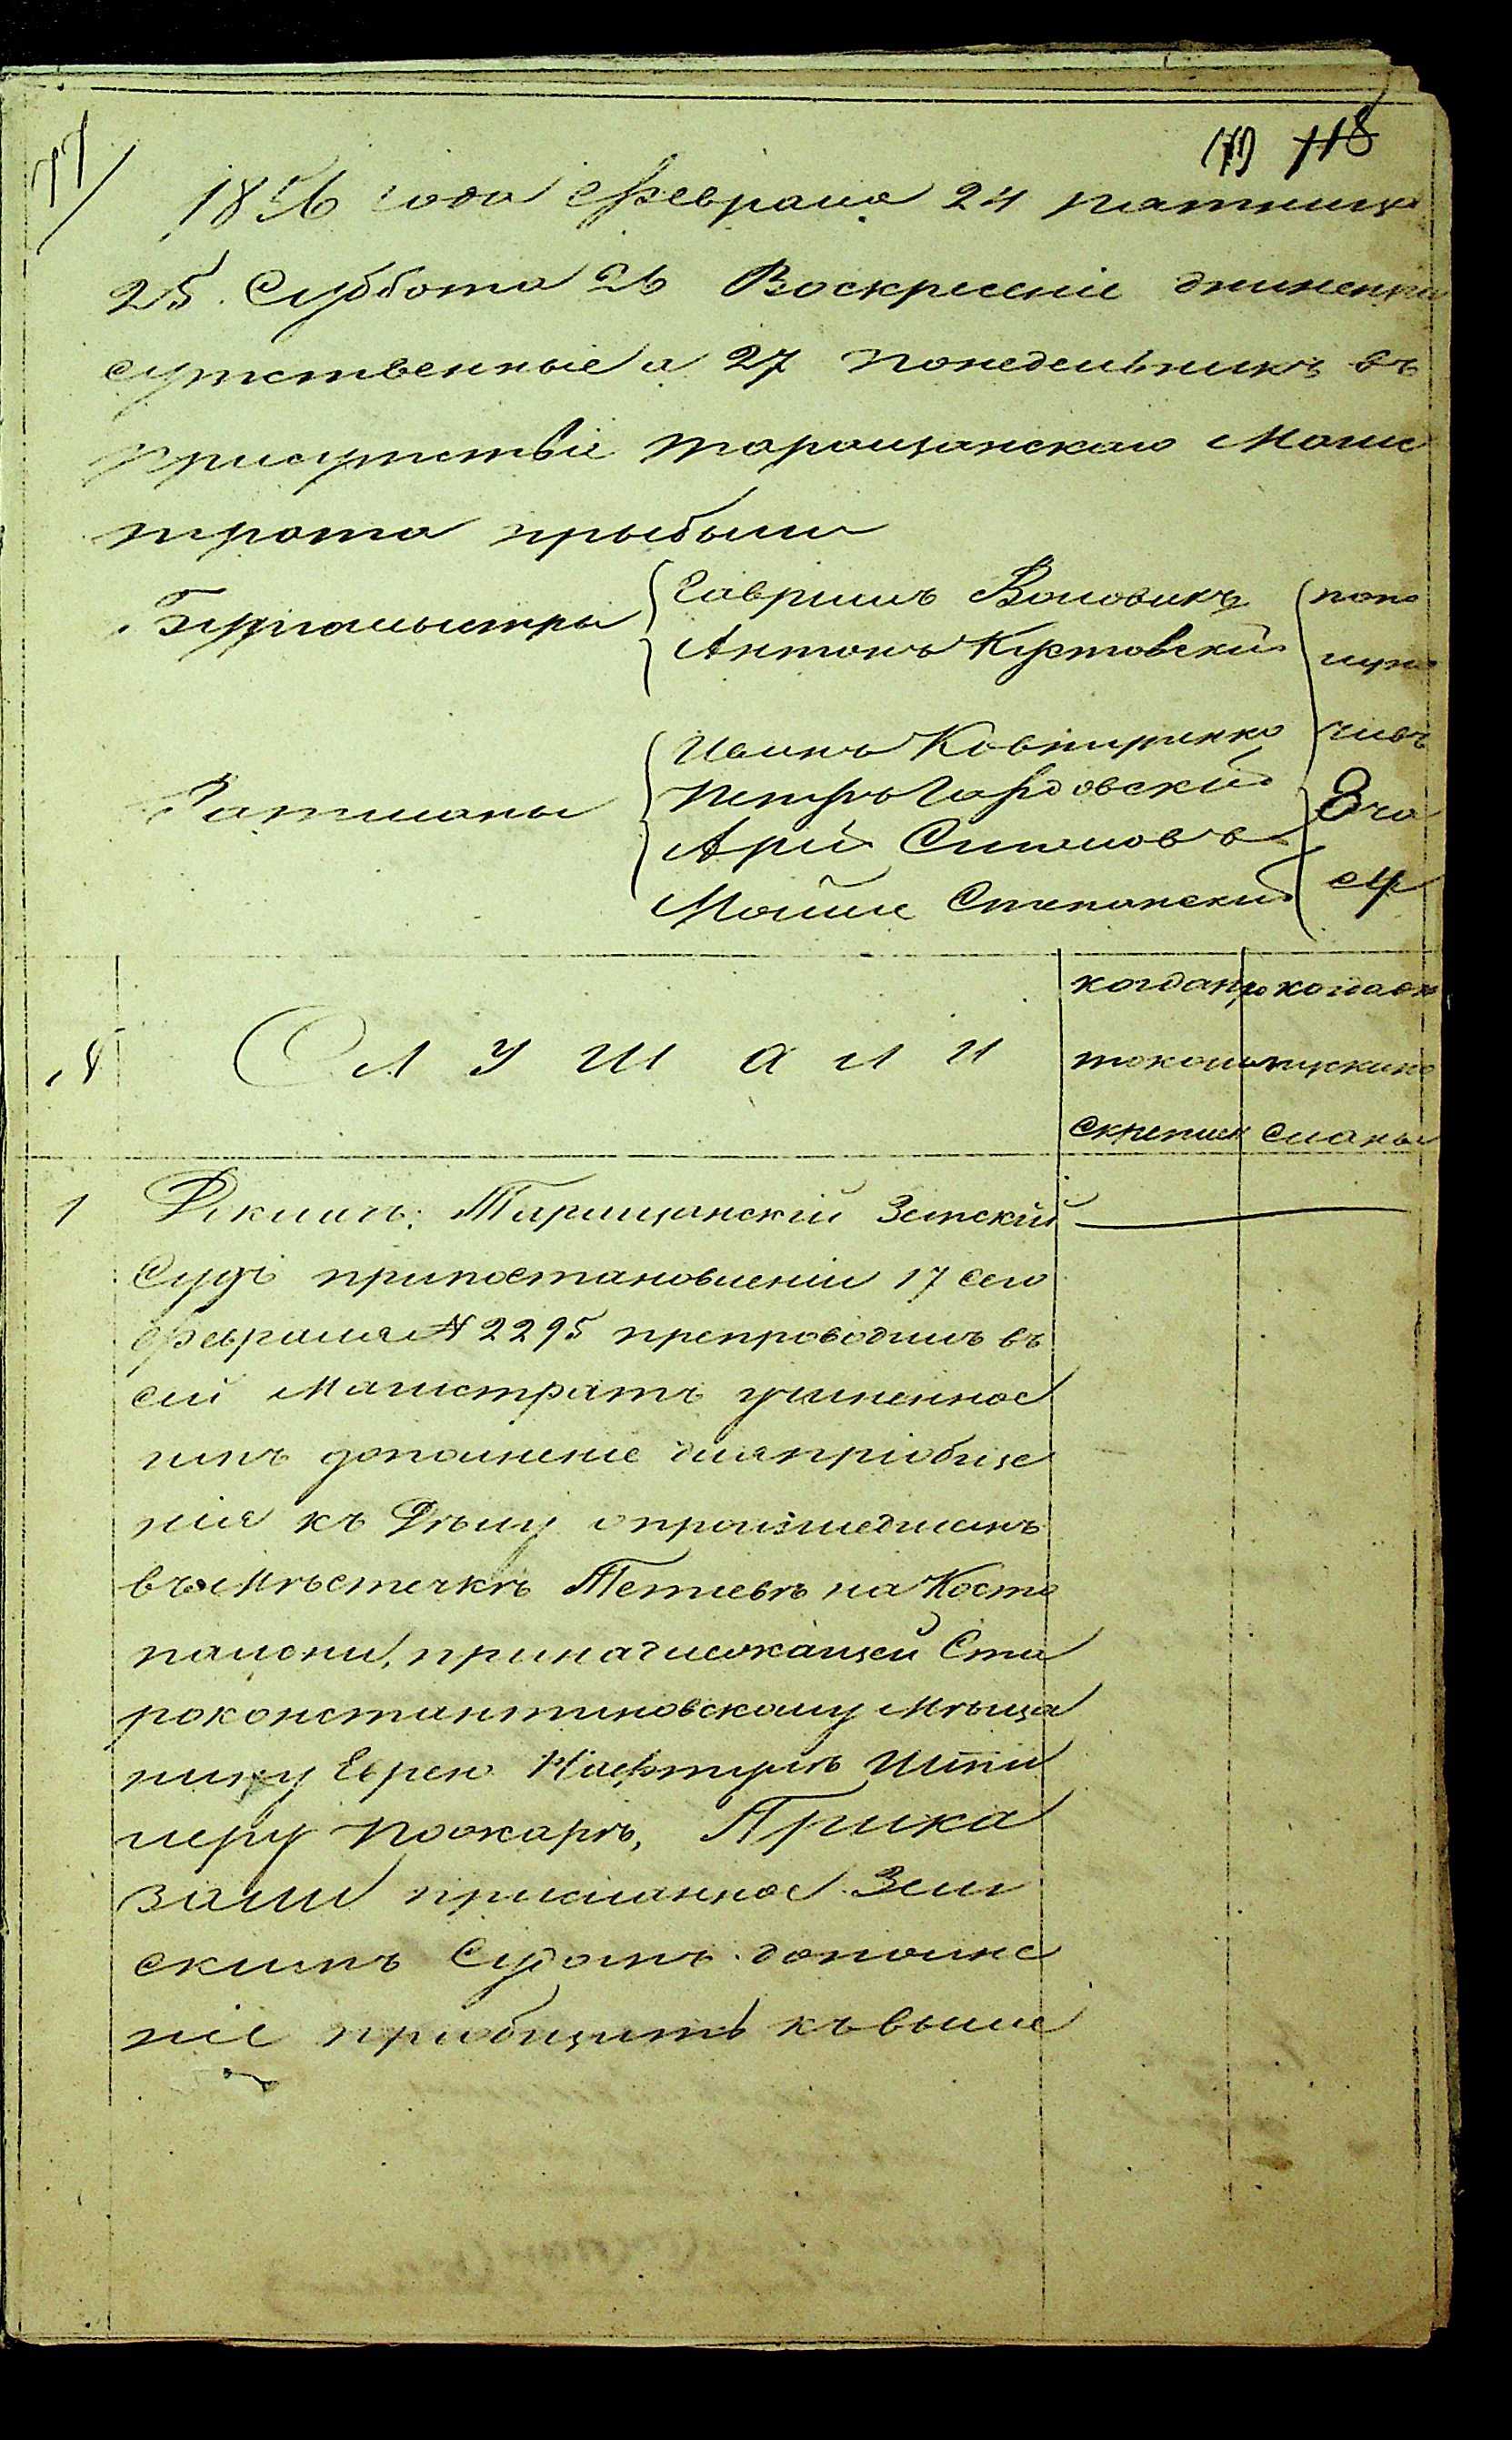 77
118
1856 года Февраля 24 пятница
25 Суббота 26 Воскресеніе дни непри
сутственные а 27 понедельникъ въ
присутствіе Таращанскаго Магис
трата прыбыли
Бургомыстры
Гавриилъ Воловикъ
Антонъ Кустовскій
Ратманы
Иванъ
Петръ
Арій
Мошко
попо
луно
чивъ
8 ча
№
Слушали
когда про
токолъ
скреплен
когда от
пуски по
сланы
1
Доклад: Таращанскій Земскій
Судъ припостановленіи 17 сего
февраля № 2295 препроводилъ въ
сей Магистратъ учиненное
имъ дополненіе для пріобще
нія къ Дѣлу о происшедшемъ
въ Мѣстечкѣ Тетіевѣ на Косто
пальни, приналежащей Ста
роконстантиновскому Мѣща
нину Еврею
леру Пожарѣ, Прика
зали присланное Зем
скимъ Судомъ дополне
ніе пріобщить къ выше